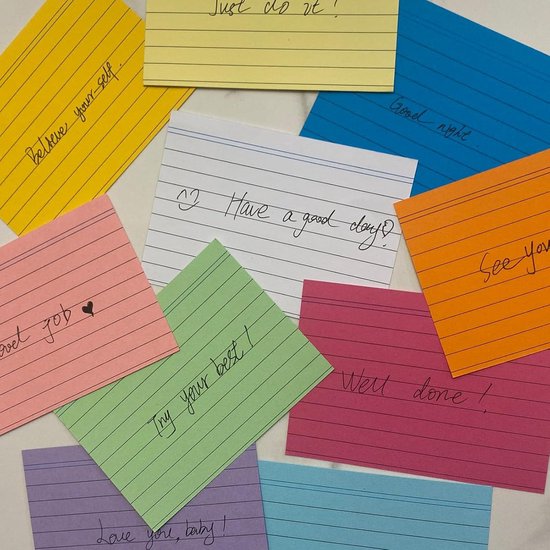 Just do it!
Believe your-self.
Good night
^⌣^ Have a good day♡
See you
Good job ♥
Try your best!
Well done!
Love you, baby!